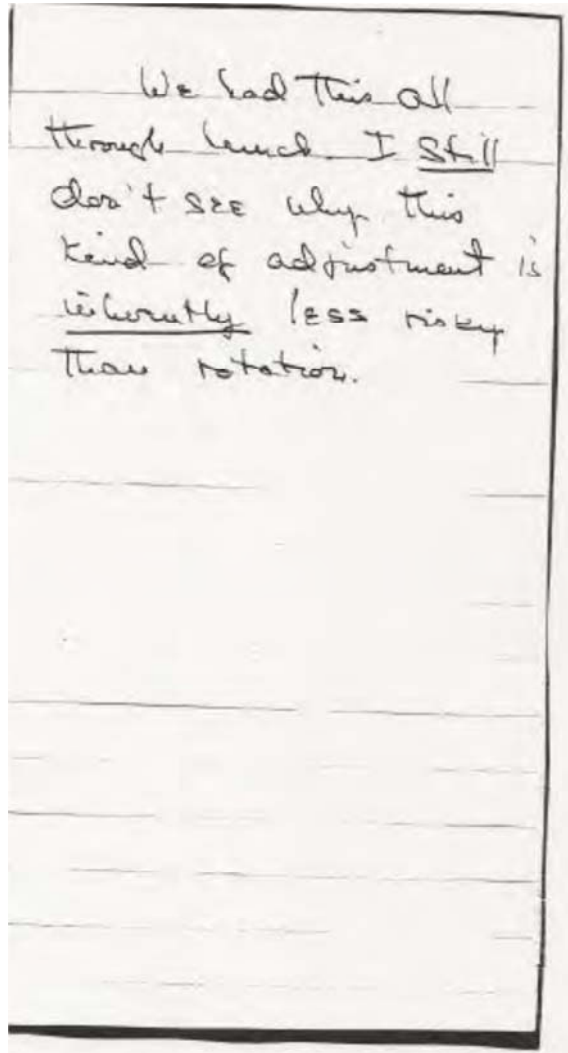 We had This all
through lunch. I still
don't see why this
kind of adjustment is
inherently less risky
Than rotation.